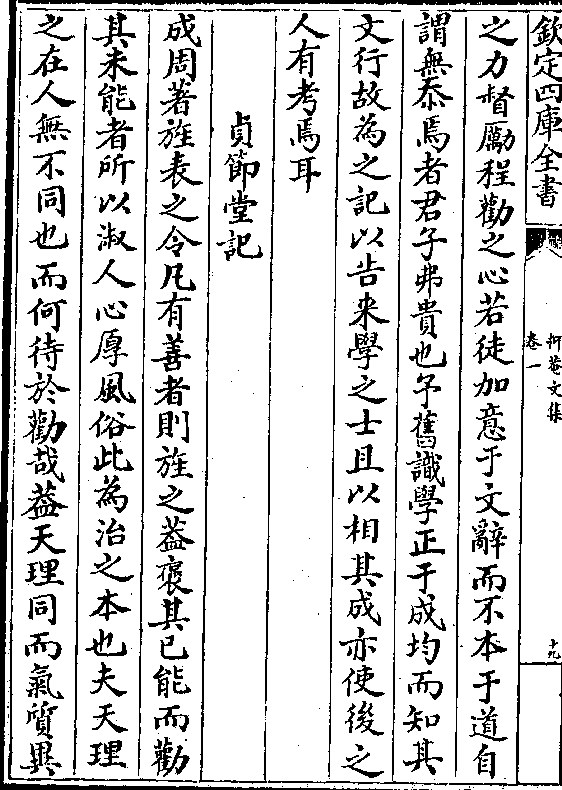 欽定四庫全書
抑菴文集
卷一
十九
之力督勵程勸之心若徒加意于文辭而不本于道自
謂無忝焉者君子弗貴也予舊識學正于成均而知其
文行故為之記以告来學之士且以相其成亦使後之
人有考焉耳
貞節堂記
成周著旌表之令凡有善者則旌之葢褒其已能而勸
其未能者所以淑人心厚風俗此為治之本也夫天理
之在人無不同也而何待於勸哉葢天理同而氣質異